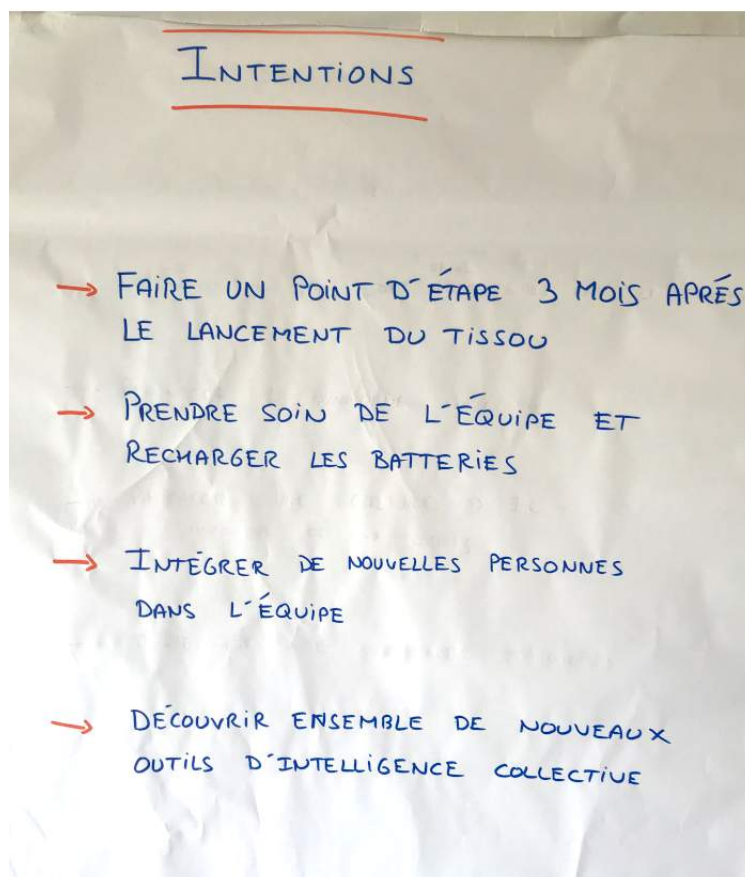 INTENTIONS
→ FAIRE UN POINT D'ÉTAPE 3 MOIS APRÉS
LE LANCEMENT DU TISSOU
→ PRENDRE SOIN DE L'ÉQUIPE ET
RECHARGER LES BATTERIES
→ INTÉGRER DE NOUVELLES PERSONNES
DANS L'ÉQUIPE
→ DÉCOUVRIR ENSEMBLE DE NOUVEAUX
OUTILS D'INTELLIGENCE COLLECTIVE